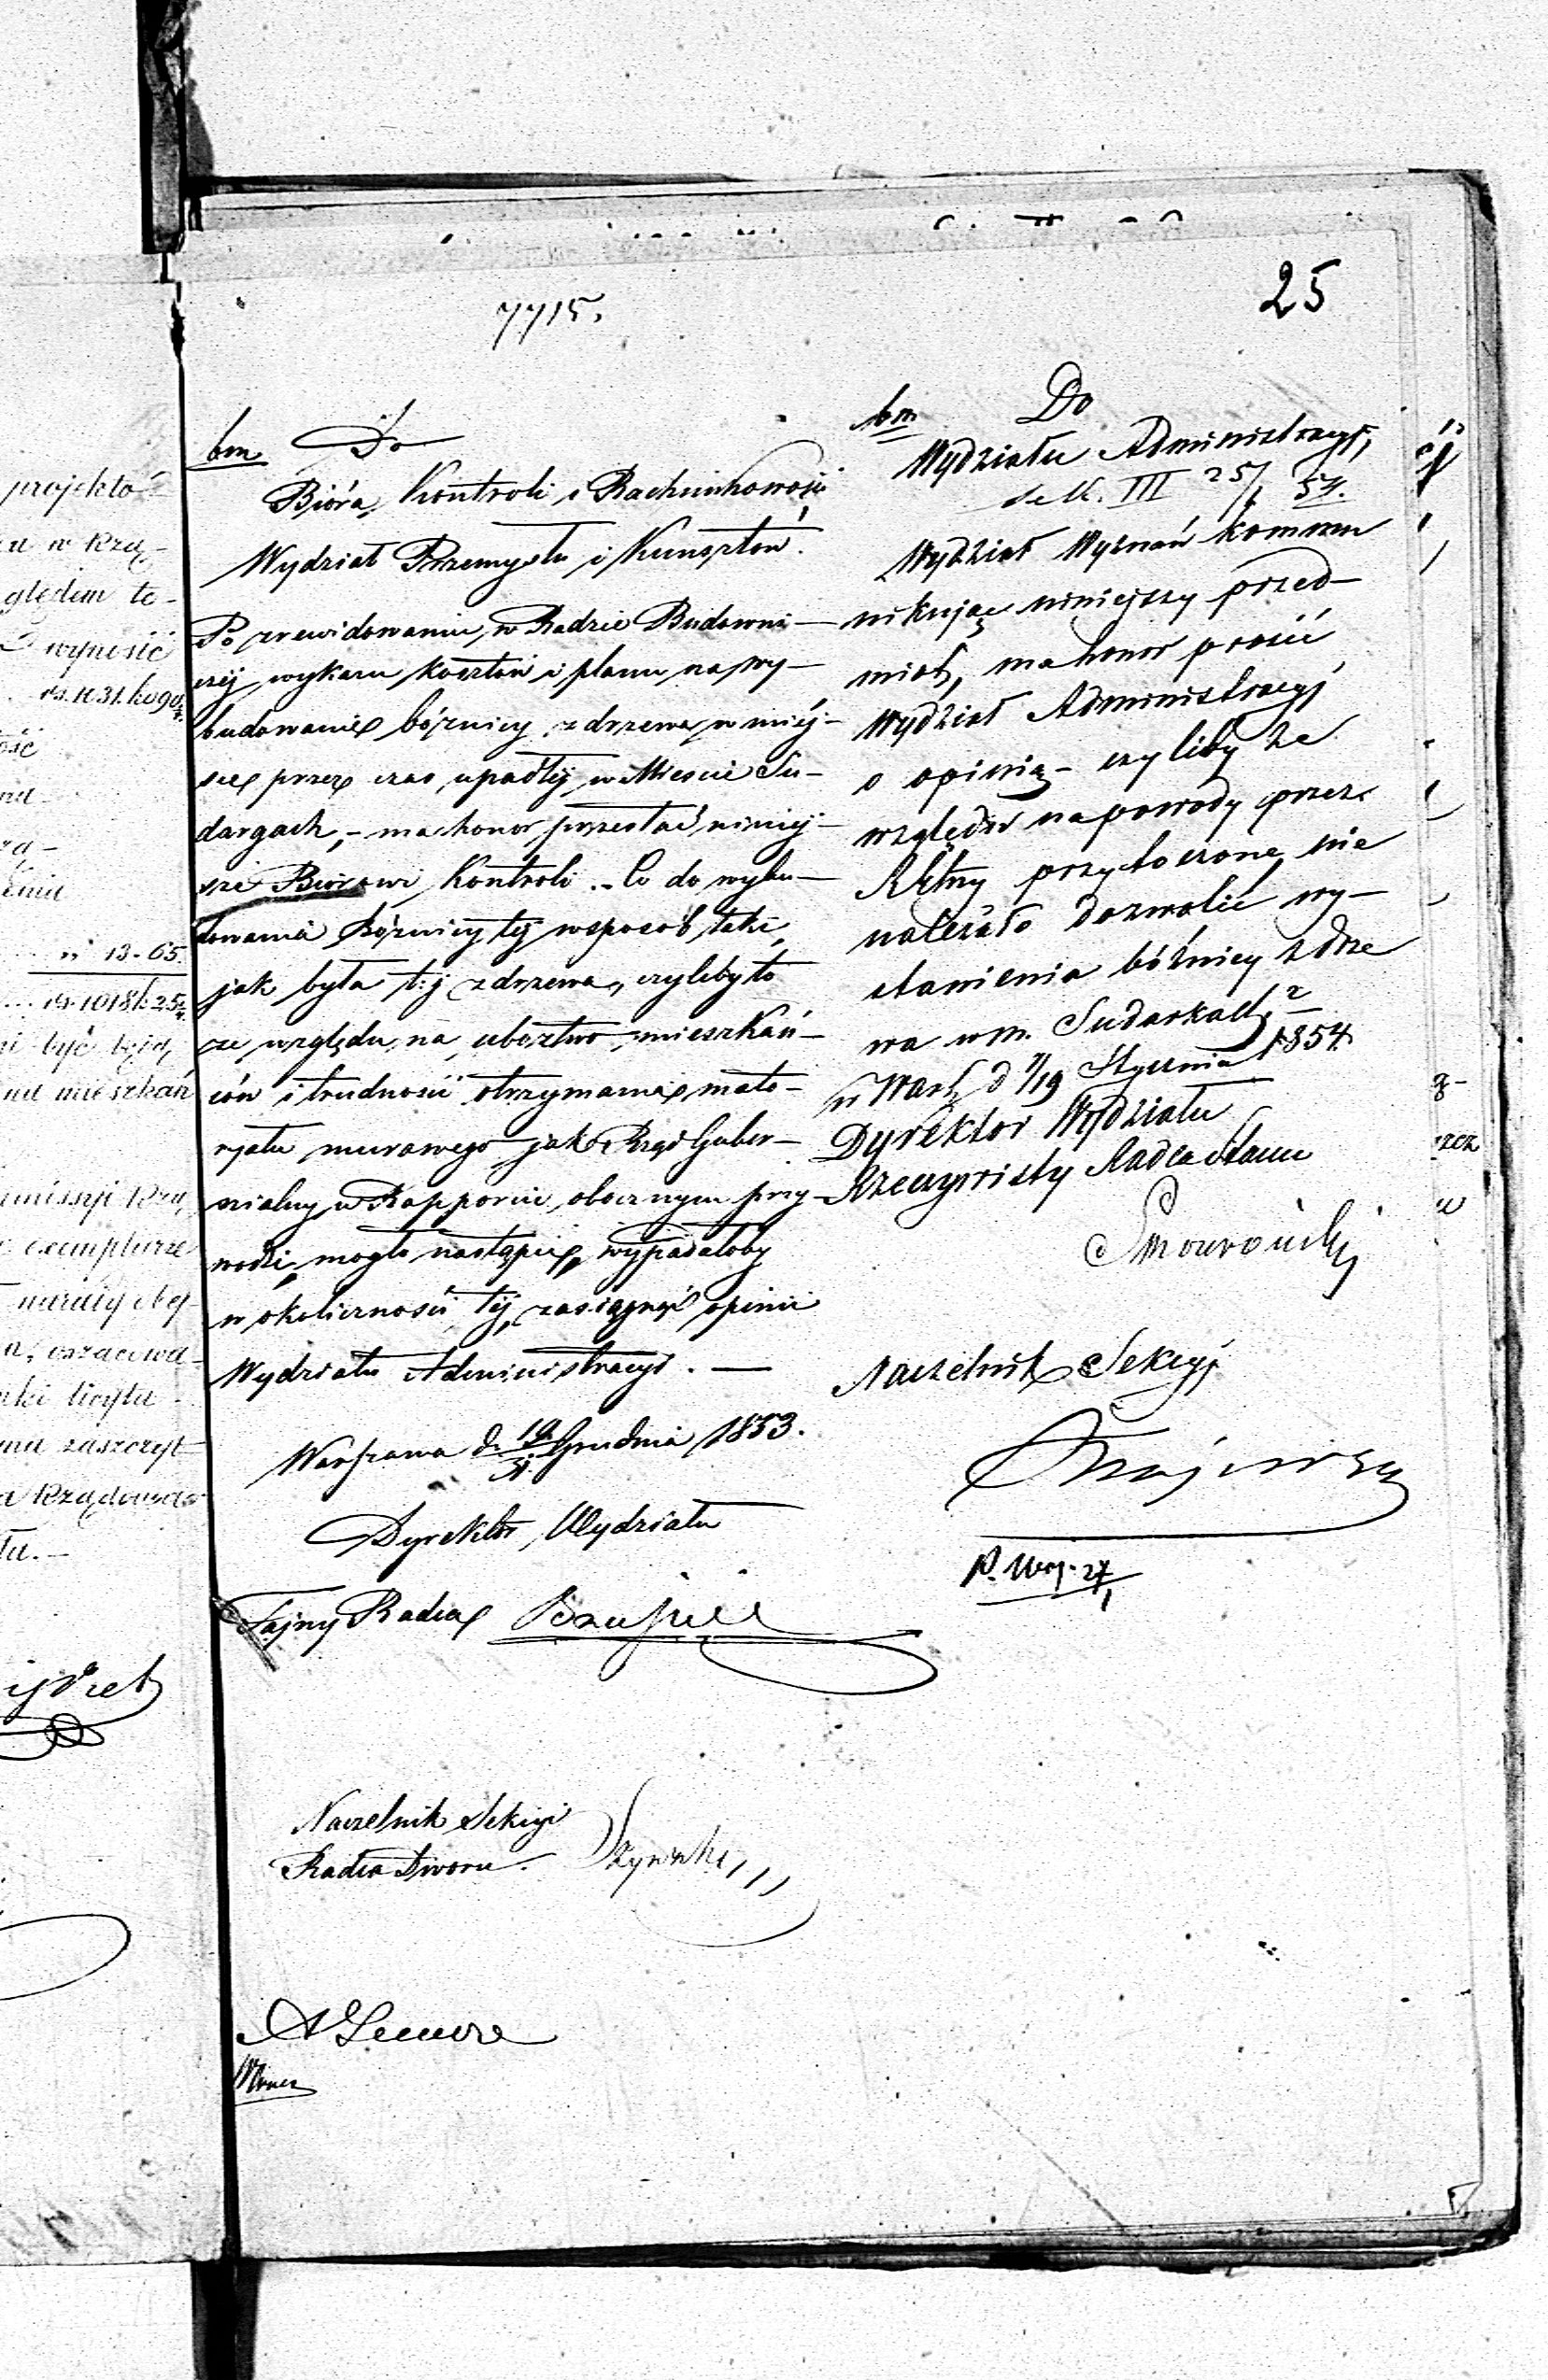 25
7715.
bm Do
Bióra Kontroli i Rachunkowości
Wydział Przemysłu i Kunsztów.
Po zrewidowaniu w Radzie Budowni-
czéj wykazu kosztów i planu na wy-
budowanie bóżnicy z drzewa w miéj-
sce przez czas upadłéj w Mieście Su-
dargach, - ma honor przesłać niniej-
sze Biórowi Kontroli. - Co do wybu-
dowania Bóżnicy téj w sposób taki
jak była t.j. z drzewa, czyliby to
ze względu na ubóztwo mieszkań-
ców i trudności otrzymania mate-
ryału murowego jak Rząd Guber-
nialny w Rapporcie obocznym przy-
wodzi, mogło nastąpić, wypadałoby
w okoliczności téj zasiągnąć opinii
Wydziału Administracyi. -
Warszawa d. 19/31 Grudnia 1853.
Dyrektor Wydziału
Tajny Radca
Naczelnik Sekcyi
Radca Dworu.
bm Do
Wydziału Administracyi,
III 25/1 54.
Wydział Wyznań kommu
nikując niniejszy przed-
miot, ma honor prosić
Wydział Administracyj
o opinią - czyliby ze
względu na powody przez
RGlny przytoczone nie
należało dozwolić wy-
stawienia bóżnicy z drze
wa w m. Sudarkach.
w Warsz d 7/19 Stycznia 1854
Dyrektor Wydziału
Rzeczywisty Radca Stanu
Naczelnik Sekcyj
projektó
w Rzą-
ględem te-
wynosić
rs. 1031. ko 90
13-65.
rs. 1018 k. 25
być będą
mieszkań
exemplarze
zaszczyt